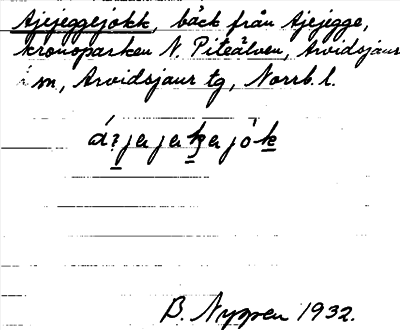 Ajejeggejokk, bäck från Ajejegge,
kronoparken N. Piteälven, Arvidsjaur
m, Arvidsjaur tg, Norrb. l.
B. Nygren 1932.